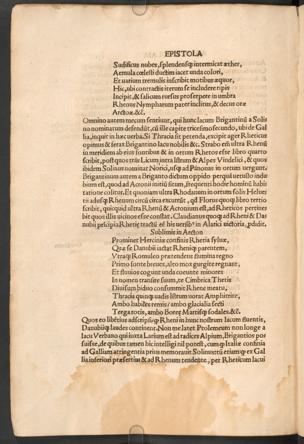 EPISTOLA
Sudificus nubes, splendensq; intermicat æther,
Aemula cœlesti ductim iacet unda colori,
Et uarium tremulis inscribit motibus æquor,
Hic, ubi contractis iterum se includere ripis
Incipit, & salicum rursus prospere in umbra
Rhetous Nympharum pater inclitus, & decus oræ
Arctoæ. &c.
Omnino autem mecum sentiunt, qui hunc lacum Brigantinū a Soli
no nominatum defendūt, cū ille capite tricesimo secundo, ubi de Gal
lia, inquit in hæc uerba. Si Thracia sit petenda, excipit ager Rheticus
opimus & ferax Brigantino lacu nobilis &c. Strabo est ultra Rhenū
in meridiem ab eius fontibus & in ortum Rhetos esse libro quarto
scribit, post quos tris Licum iuxta Iistrum & Alpes Vindelici, & quos
ibidem Solinus nominat Norici, usq; ad Panonas in ortum uergunt.
Brigantinum autem a Brigantio dictum oppido perquā uetusto indu
bium est, quod ad Aconii montis situm, frequenti hodie hominū habi
tatione colitur. Et quoniam ultra Rhodanum in ortum solis Heluet
tii adusq; Rhenum circū circa excurrūt, qd Florus quoq; libro tertio
scribit, quicquid ultra Rhenū & Aconium est, ad Rheticos pertinere
bit quot illis uicinos esse constat. Claudianus quoq; ad Rhenū & Da
nubii præcipia Rhetię tractū eſ his uersibus in Alarici uictoria, pdidit.
Sublimis in Arcton
Prominet Hercinię confinis Rhetia syluæ,
Quæ se Danubii iactat Rheniq; parentem,
Vtraq; Romuleo prætendens flumina regno
Primo fonte breues, alto mox gurgite regnant,
Et fluuios cogunt unda coeunte minores
In nomen transire suum, te Cimbrica Thetis
Diuisum bifido consumit Rhene meatu,
Thracia quinq; uadis Iistrum uorat Amphitrite,
Ambo habiles remis / ambo glacialia secti
Terga rotis, ambo Boreę Martisq; sodales. &c.
Quot eo libētius adscripsi, q; Rhenū in hunc nostrum lacum fluentis,
Danubiiq; laudes continent. Non me latet Ptolemeum non longe a
lacu Verbano qui iuxta Larium est ad radices Alpium, Brigantios po
suisse, de quibus tamen hic intelligi nil potest, cum q; Italiæ confinia
ad Galliam attingentia prius memorauit Solinus, tū etiam q; ex Gal
lia inferiori præsertim & ad Rhenum tendente, per Rheticum lacui